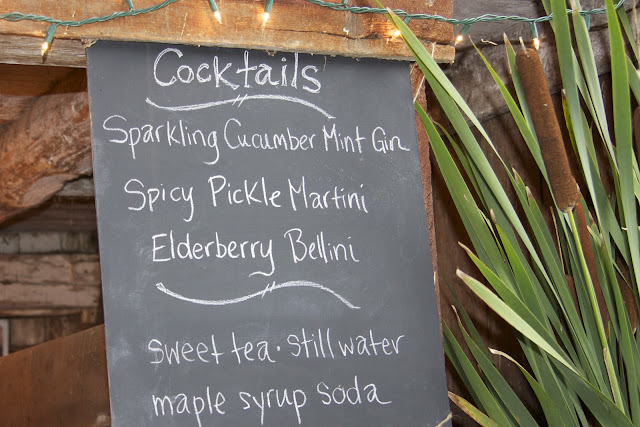 Cocktails
Sparkling Cucumber Mint Gin
Spicy Pickle Martini
Elderberry Bellini
sweet tea · still water
maple syrup soda